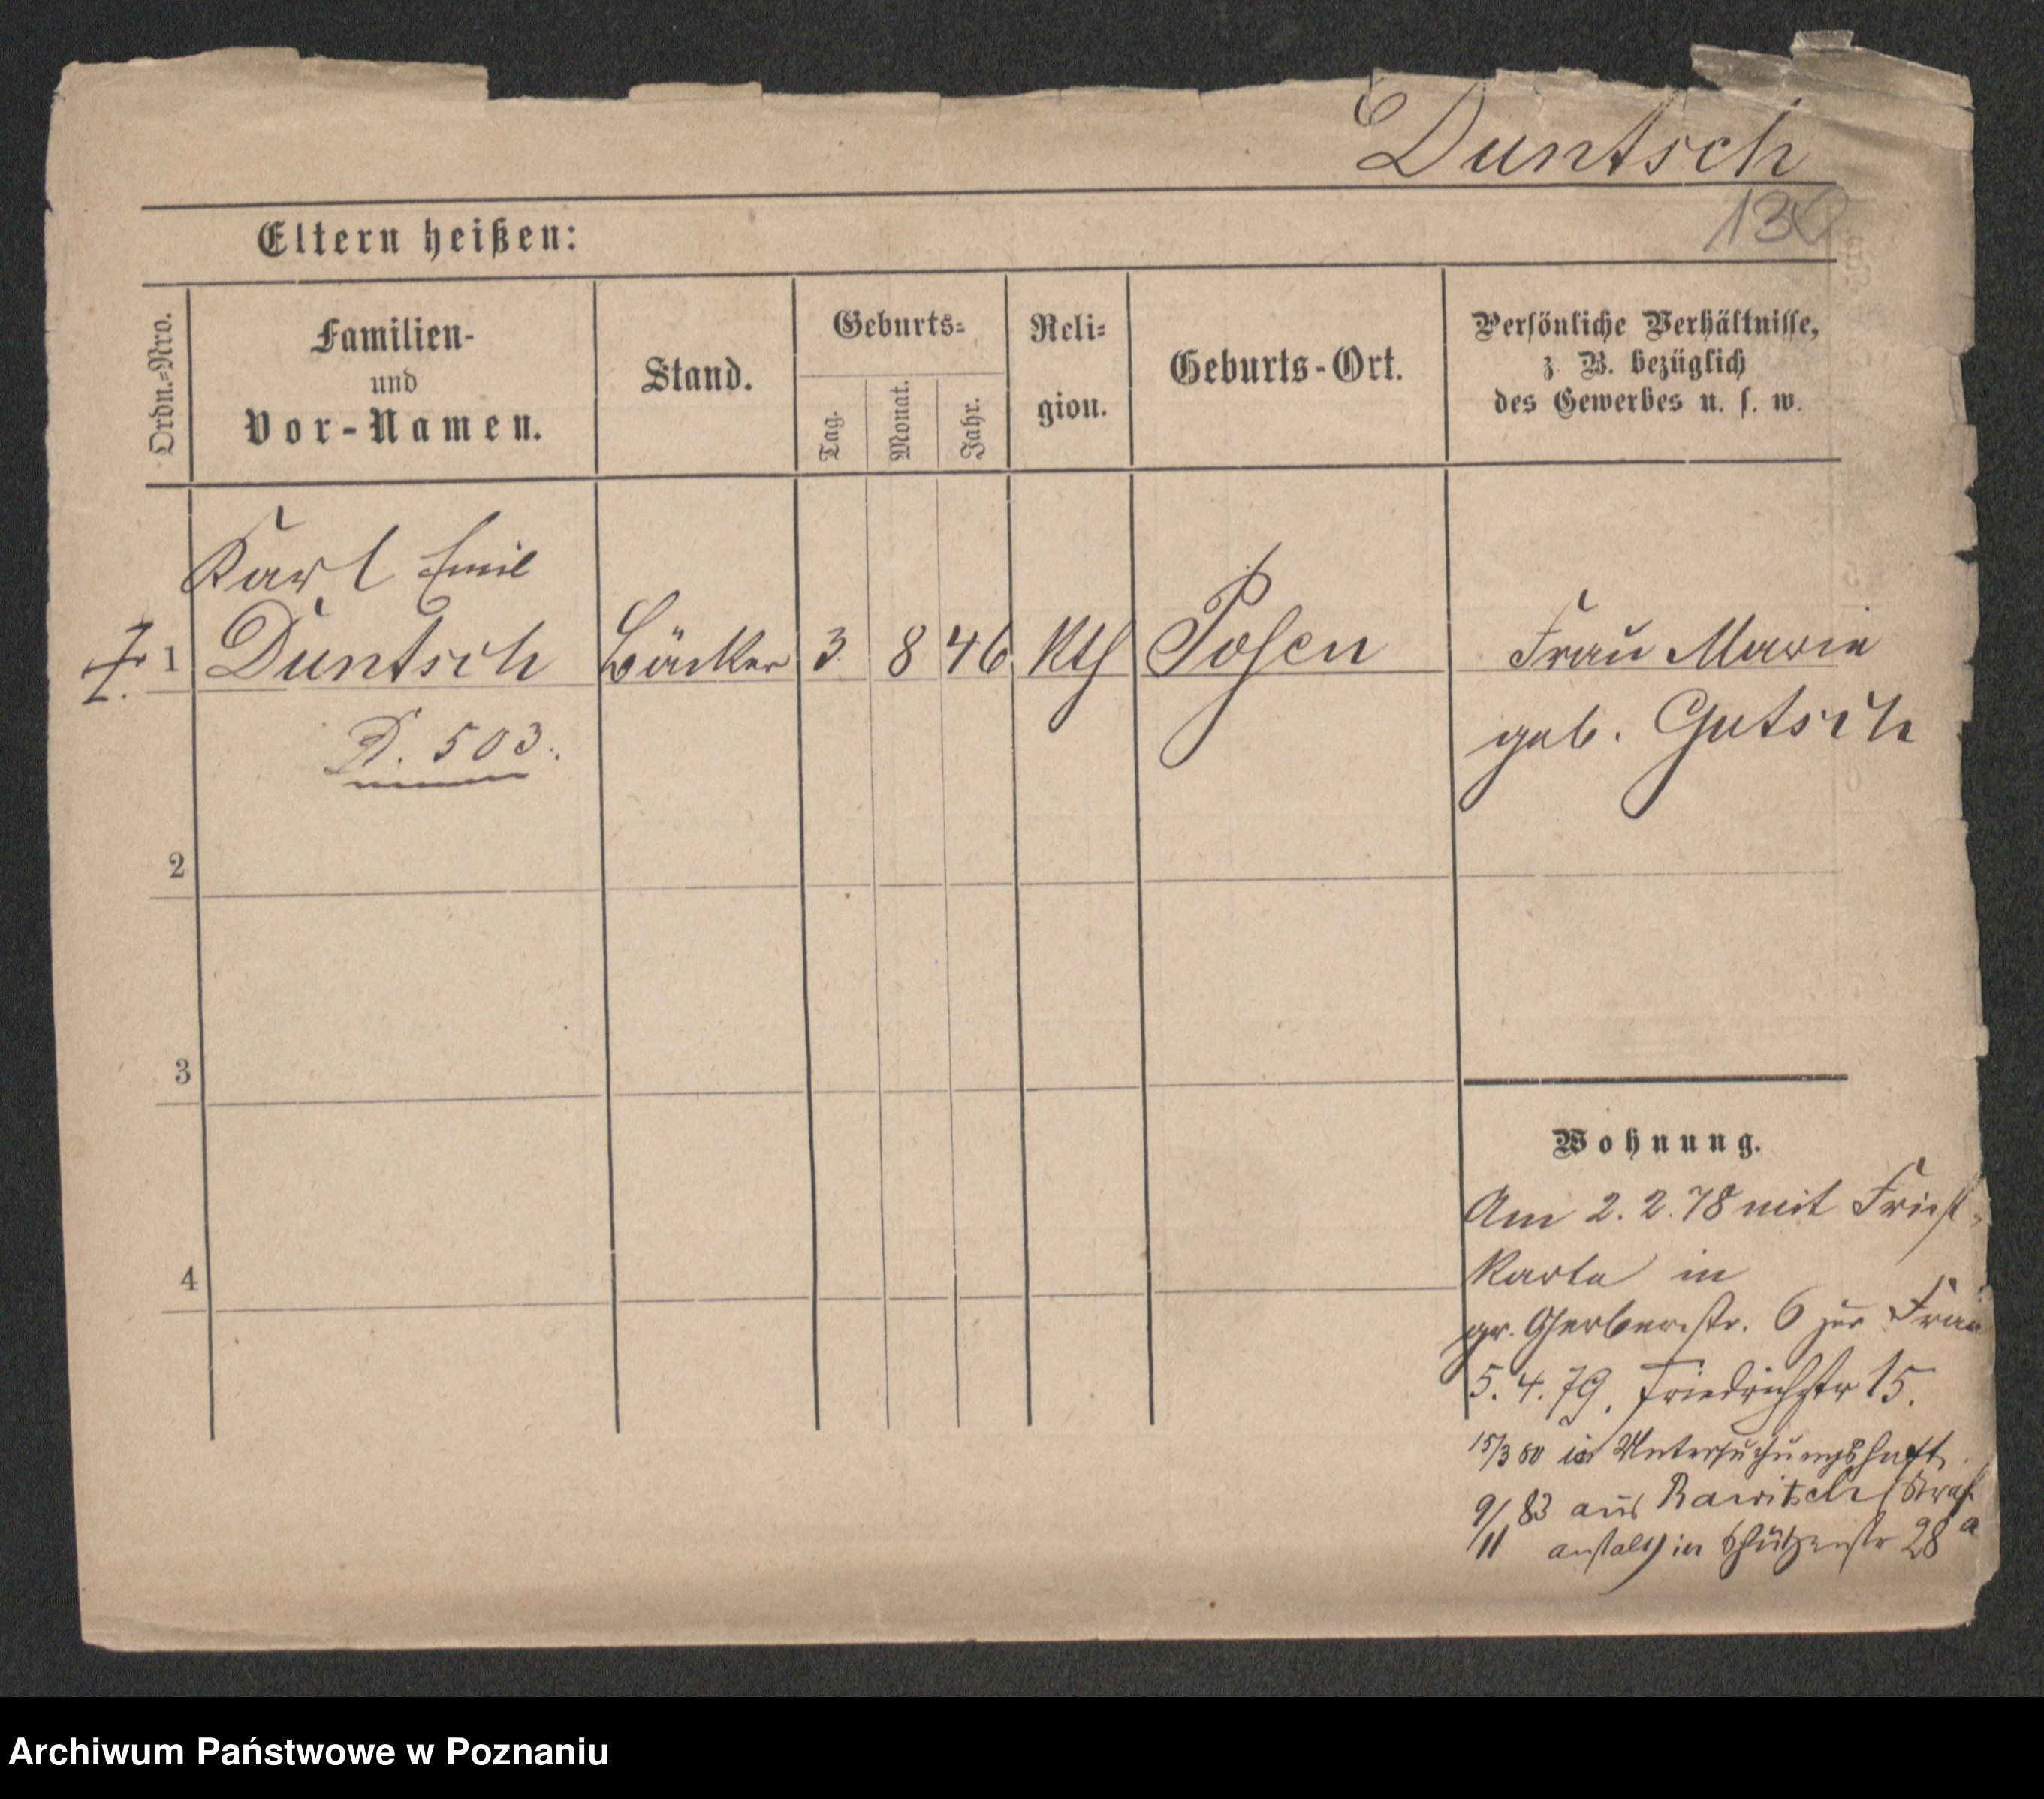 Duntsch
Eltern heißen:
Ordn.=Nro.
Familien-
und
Vor-Namen.
Stand.
Geburts=
Tag.
Monat.
Jahr.
Reli=
gion.
Geburts-Ort.
Persönliche Verhältnisse,
z. B. bezüglich
des Gewerbes u. s. w.
Karl Emil
1 Duntsch Bäcker 3 8 46 Kth Posen Frau Marie
geb. Gutsch
D. 503.
2
3
4
Wohnung.
Am 2.2.78 mit
Karte in
gr. Gerberstr. 6 zur Frau
5.4.79. Friedrichstr 15.
15/3 80 in Untersuchungshaft
9/11 83 aus Rawitsch (Straf
anstalt) in Schützenstr 28a
Archiwum Państwowe w Poznaniu